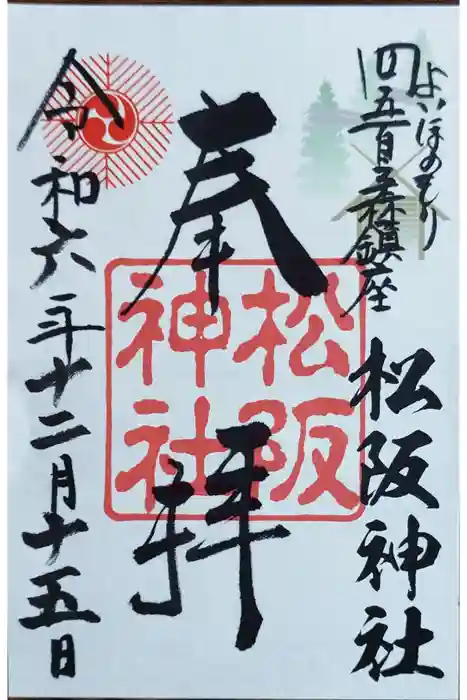 よいほのもり
四五百森鎮座
松阪神社
奉拝
松阪
神社
令和六年十二月十五日